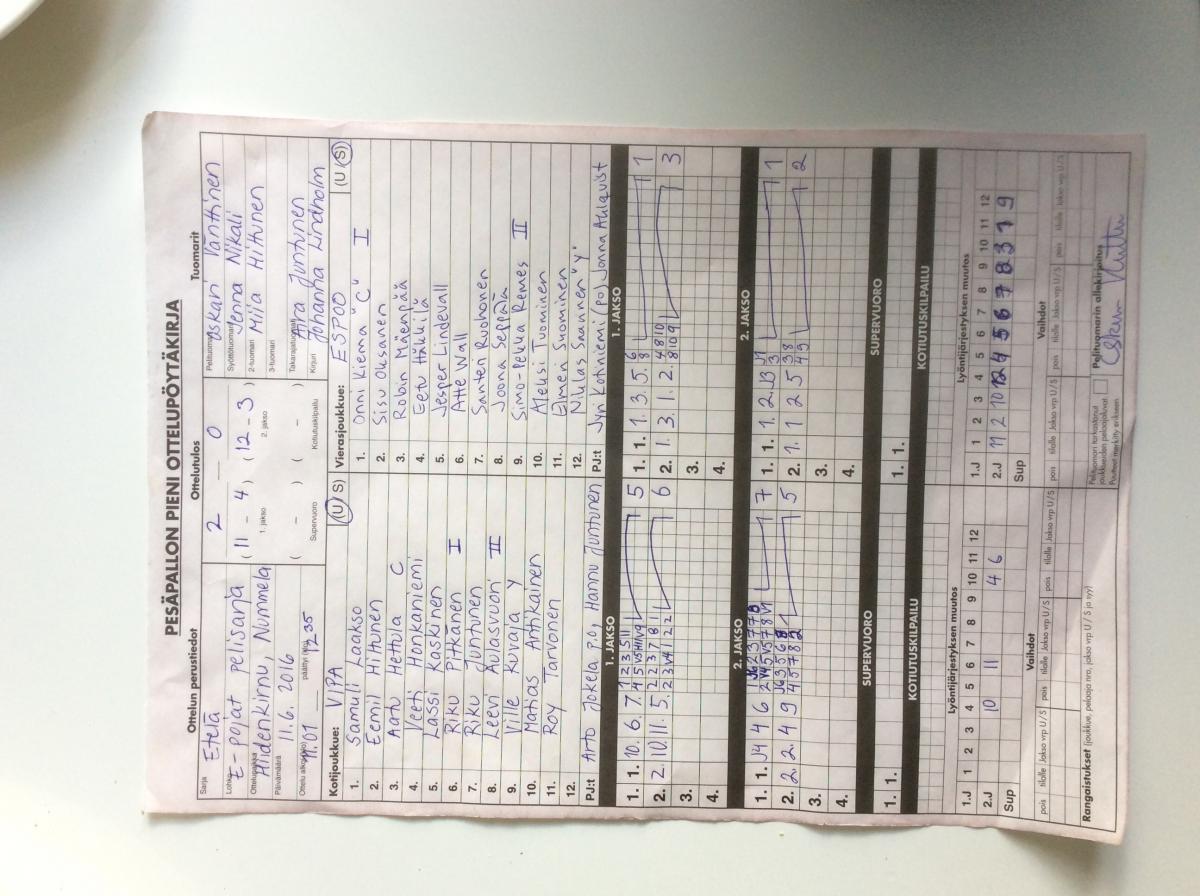 PESÄPALLON PIENI OTTELUPÖYTÄKIRJA
Ottelun perustiedot
Sarja Etelä
Lohko E-pojat pelisarja
Ottelupaikka Hiidenkirnu, Nummela
Päivämäärä 11.6. 2016
Ottelu alkoi (klo) 11.01 päättyi (klo) 12.35
Ottelutulos
2 0
( 11 - 4 ) ( 12 - 3 )
1. jakso 2. jakso
( - ) ( - )
Supervuoro Kotiutuskilpailu
Tuomarit
Pelituomari Oskari Vänttinen
Syöttötuomari Jenna Nikali
2-tuomari Milja Hiltunen
3-tuomari
Takarajatuomari Juntunen
Kirjuri Johanna Lindholm
Kotijoukkue: VIPA (U S)
1. Samuli Laakso
2. Eemil Hiltunen
3. Aatu Hettula C
4. Veeti Honkaniemi
5. Lassi Koskinen
6. Riku Pitkänen I
7. Riku Juntunen
8. Leevi Aulasvuori II
9. Ville Kuvala Y
10. Matias Antikainen
11. Roy Tarvonen
12.
PJ:t Arto Jokela p.o, Hannu Juntunen
Vierasjoukkue: ESPOO (U S)
1. Onni Kiema "C" I
2. Sisu Oksanen
3. Robin Mäenpää
4. Eetu Häkkilä
5. Jesper Lindevall
6. Atte Wall
7. Santeri Ruohonen
8. Joona Seppä
9. Simo-Pekka Remes II
10. Aleksi Tuominen
11. Elmeri Suominen
12. Niklas Saarinen "Y"
PJ:t Jyri Kotniemi (PO) Jonna Ahlquist
1. JAKSO
1. 1. 10. 6. 7. 5
2. 2. 10. 11. 5. 6
3.
4.
1. JAKSO
1. 1. 1. 3. 5. 6 8 1
2. 1. 3. 1. 2. 4 8 10 8 10 9 3
3.
4.
2. JAKSO
1. 1. 7
2. 2. 2 4 9 5
3.
4.
2. JAKSO
1. 1. 1. 2. 1
2. 1. 1 2 5 2
3.
4.
SUPERVUORO
1. 1.
KOTIUTUSKILPAILU
SUPERVUORO
1. 1.
KOTIUTUSKILPAILU
Lyöntijärjestyksen muutos
1.J 1 2 3 4 5 6 7 8 9 10 11 12
2.J 10 11 4 6
Sup
Vaihdot
pois tilalle Jakso vrp U/S pois tilalle Jakso vrp U/S pois tilalle Jakso vrp U/S
Lyöntijärjestyksen muutos
1.J 1 2 3 4 5 6 7 8 9 10 11 12
2.J 11 2 10 12 4 5 6 7 8 3 1 9
Sup
Vaihdot
pois tilalle Jakso vrp U/S pois tilalle Jakso vrp U/S pois tilalle Jakso vrp U/S
Rangaistukset (joukkue, pelaaja nro, jakso vrp U / S ja syy)
Pelituomari tarkastanut
joukkueiden pelaajaluvat.
Puutteet merkitty erikseen
Pelituomarin allekirjoitus